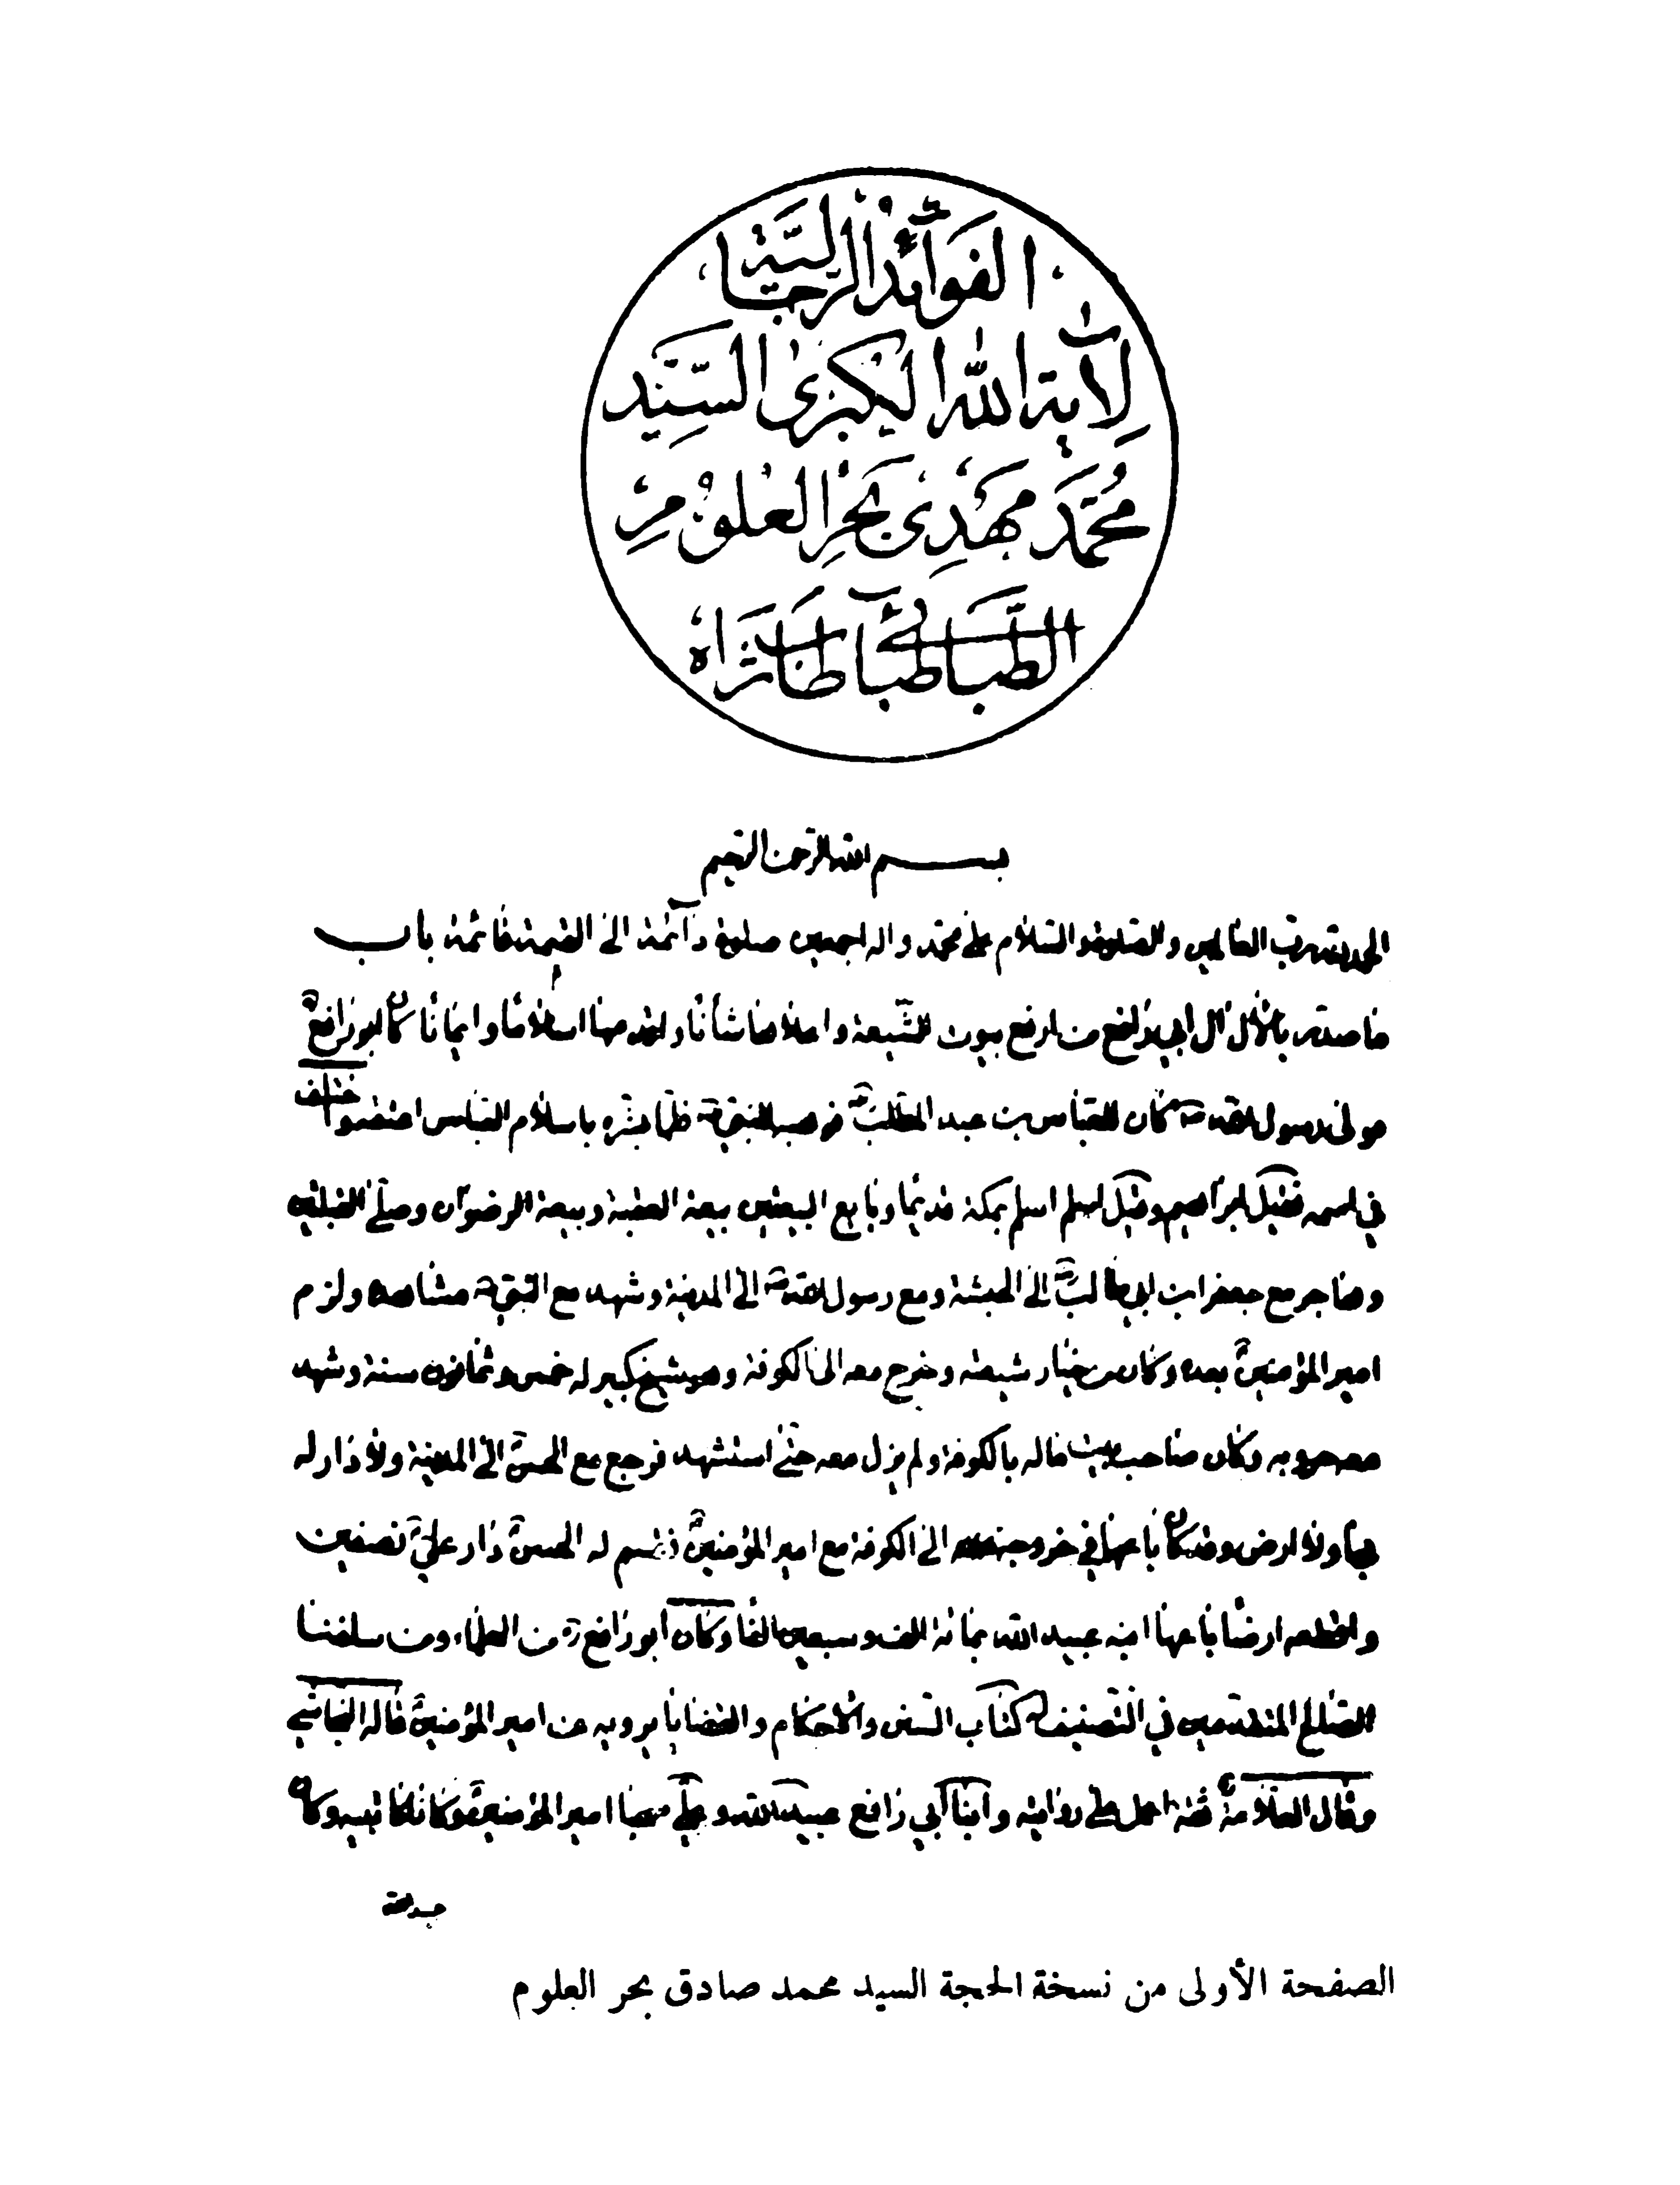 الفَوائد الرجاليّة
لآية الله الكبرى السيّد
محمّد مهدي بحر العلوم
الطباطبائي طاب ثراه
بسم الله الرحمن الرحيم
الحمد لله رب العالمين والصلوة والسلام على محمّد واله اجمعين صلوة دآئمة الى القيمة قائمة باب
ما صدر بالآل آل ابي رافع من ارفع بيوت الشّيعة واعلاها شأنا واقدمها اسلاما وايمانا كان ابورافع
مولى رسول الله ص كان للعباس بن عبد المطلب فوهبه للنبي ص فلما بشره باسلام العباس اعتقه واختلف
في اسمه فقيل ابراهيم وقيل اسلم اسلم بمكة قديما وبايع البيعتين بيعة العقبة وبيعة الرضوان وصلى القبلتين
وهاجر مع جعفر ابن ابي طالب الى الحبشة ومع رسول الله ص الى المدينة وشهد مع النبي ص مشاهده ولزم
امير المؤمنين بعده وكان من خيار شيعته وخرج معه الى الكوفة وهو شيخ كبير له خمس وثمانون سنة وشهد
معه حروبه وكان صاحب بيت ماله بالكوفة ولم يزل معه حتى استشهد فرجع مع الحسن الى المدينة ولا دار له
بها ولا ارض وقد كان باعها في خروجه الى الكوفة مع امير المؤمنين فقسم له الحسن دار علي نصفين
واقطعه ارضا باعها ابنه عبيد الله بمائة الف وسبعين الفا وكان ابو رافع ره من العلماء ومن سلفنا
الصالح المتقدمين في التصنيف له كتاب السنن والاحكام والقضايا يرويه عن امير المؤمنين قاله النجاشي
وقال العلامة ثقة اعمل على روايته وابنا أبي رافع عبيد الله وعلي صحبا امير المؤمنين وكانا كاتبيه وكان
الصفحة الأولى من نسخة الحجة السيد محمد صادق بحر العلوم